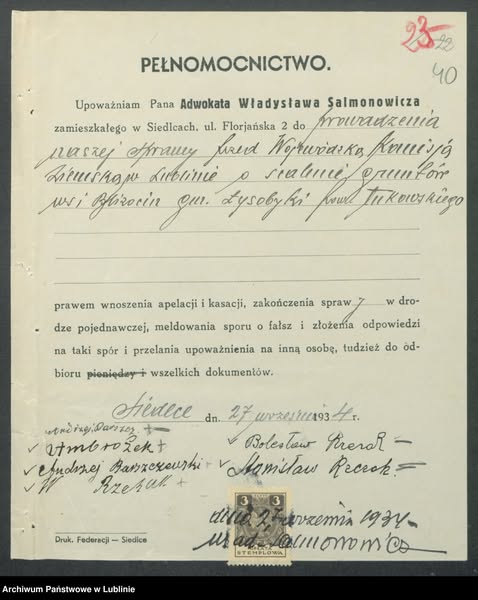 23
22
40
PEŁNOMOCNICTWO.
Upoważniam Pana Adwokata Władysława Salmonowicza
zamieszkałego w Siedlcach, ul. Florjańska 2 do prowadzenia
naszej sprawy przed Wojewódzką Komisją
Ziemską w Lublinie o scalenie gruntów
wsi Blizocin gm. Łysobyki pow. Łukowskiego
prawem wnoszenia apelacji i kasacji, zakończenia spraw y w dro-
dze pojednawczej, meldowania sporu o fałsz i złożenia odpowiedzi
na taki spór i przelania upoważnienia na inną osobę, tudzież do od-
bioru pieniędzy i wszelkich dokumentów.
Siedlce dn. 27 wrzesień 1934 r.
Ambrożek + Bolesław
Andrzej Barszczewski + Stanisław
W Rzekak +
3 3
STEMPLOWA
dnia 27 września 1934
Salmonowicz
Druk. Federacji — Siedlce
Archiwum Państwowe w Lublinie